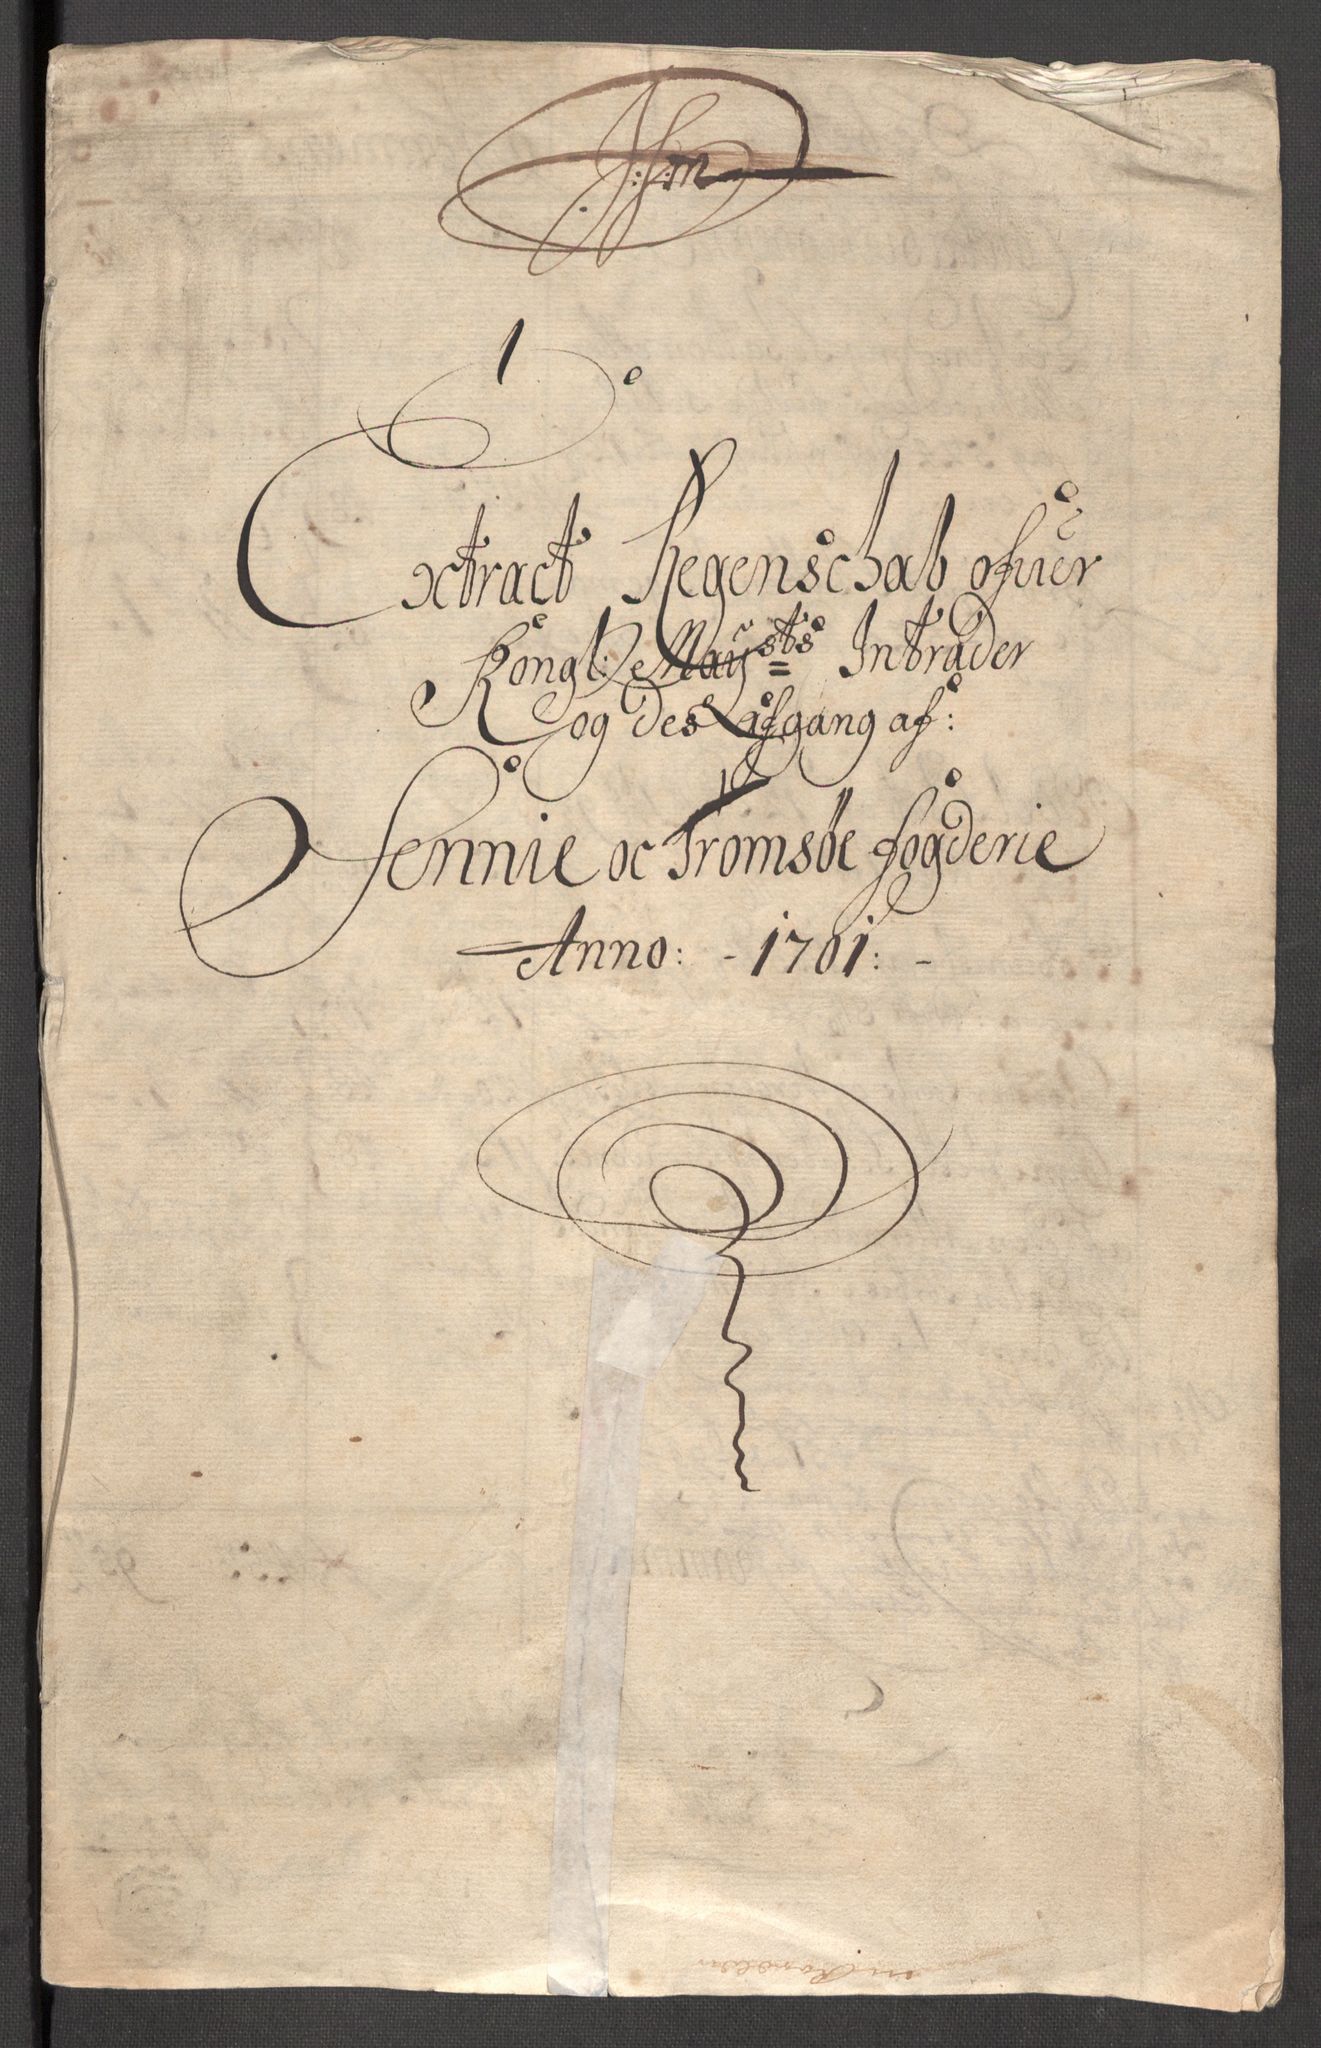 1
Extract Regenschab ofuer
Kongl: Mayˢᵗˢ Intrader
og des Afgang af:
Sennie oc Tromsøe fogderie
Anno: - 1701: -